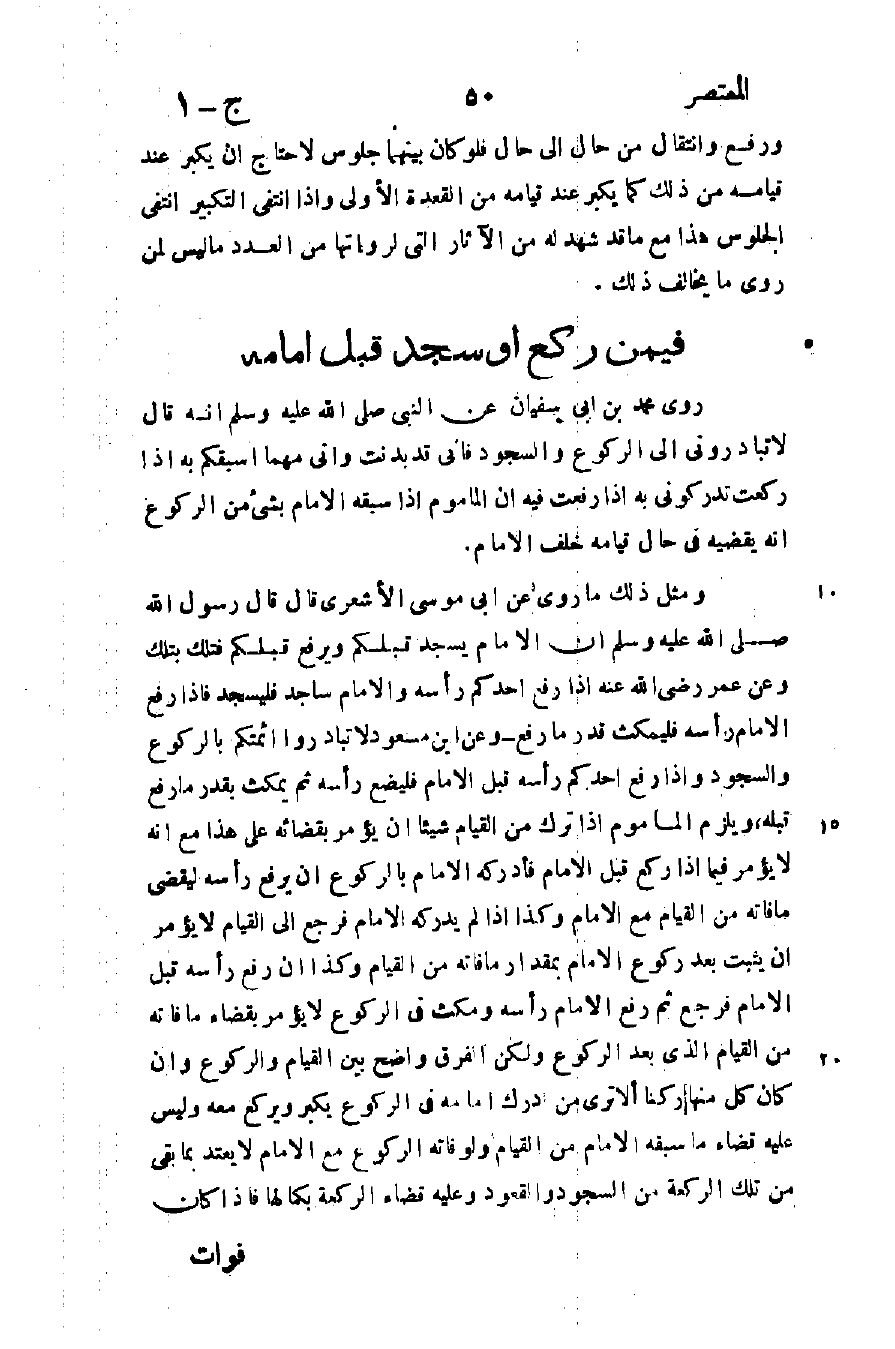 المعتصر ٥٠ ج – ١
ورفع وانتقال من حال الى حال فلو كان بينهما جلوس لاحتاج ان يكبر عند
قيامه من ذلك كما يكبر عند قيامه من القعدة الأولى واذا انتفى التكبير انتفى
الجلوس هذا مع ماقد شهد له من الآثار التى لرواتها من العدد ماليس لمن
روى ما يخالف ذلك .
فيمن ركع او سجد قبل امامه
روى محمد بن ابى سفيان عن النبى صلى الله عليه وسلم انه قال
لاتبادرونى الى الركوع والسجود فانى قد بدنت وانى مهما اسبقكم به اذا
ركعت تدركونى به اذا رفعت فيه ان الماموم اذا سبقه الامام بشىء من الركوع
انه يقضيه فى حال قيامه خلف الامام.
ومثل ذلك ماروى عن ابى موسى الأشعرى قال قال رسول الله ١٠
صلى الله عليه وسلم ان الامام يسجد قبلكم ويرفع قبلكم فتلك بتلك
وعن عمر رضى الله عنه اذا رفع احدكم رأسه والامام ساجد فليسجد فاذا رفع
الامام رأسه فليمكث قدر ما رفع – وعن ابن مسعود لاتبادروا ائمتكم بالركوع
والسجود واذا رفع احدكم رأسه قبل الامام فليضع رأسه ثم يمكث بقدر مارفع
قبله، ويلزم الماموم اذا ترك من القيام شيئا ان يؤمر بقضائه على هذا مع انه ١٥
لايؤمر فيما اذا ركع قبل الامام فأدركه الامام بالركوع ان يرفع رأسه ليقضى
مافاته من القيام مع الامام وكذا اذا لم يدركه الامام فرجع الى القيام لايؤمر
ان يثبت بعد ركوع الامام بمقدار مافاته من القيام وكذا ان رفع رأسه قبل
الامام فرجع ثم رفع الامام رأسه ومكث فى الركوع لايؤمر بقضاء مافاته
من القيام الذى بعد الركوع ولكن الفرق واضح بين القيام والركوع وان ٢٠
كان كل منها ركنا ألاترى من ادرك امامه فى الركوع يكبر ويركع معه وليس
عليه قضاء ما سبقه الامام من القيام ولو فاته الركوع مع الامام لايعتد بما بقى
من تلك الركعة من السجود والقعود وعليه قضاء الركعة بكمالها فاذا كان
فوات